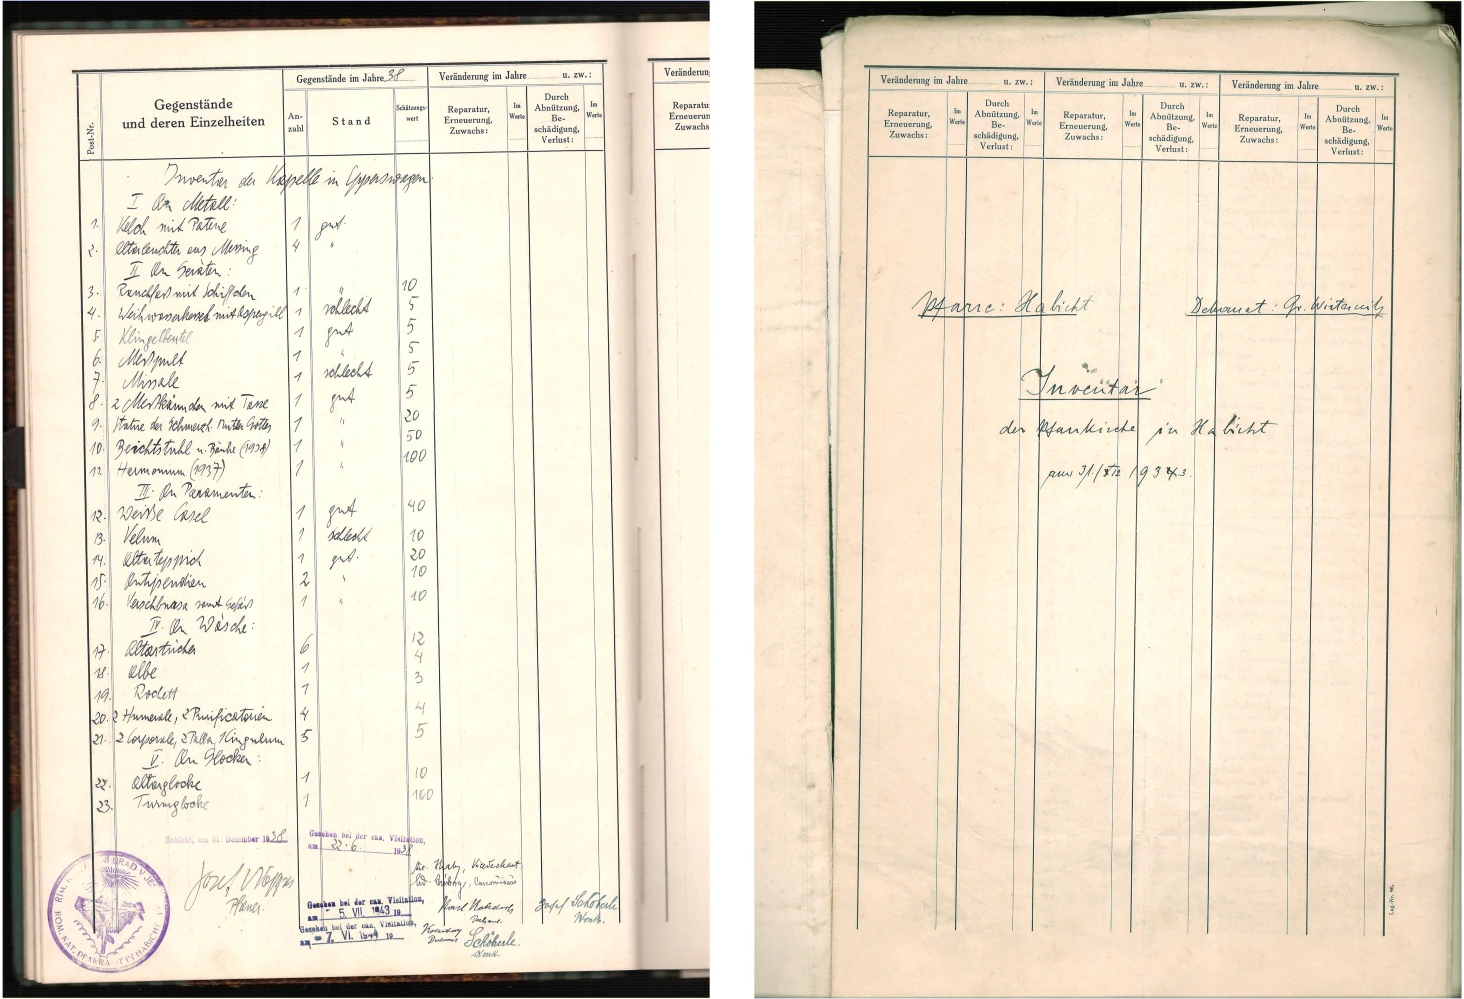 Gegenstände im Jahre 38
Veränderung im Jahre u. zw.:
Veränderung
Post-Nr.
Gegenstände
und deren Einzelheiten
An-
zahl
Stand
Schätzungs-
wert
Reparatur,
Erneuerung,
Zuwachs:
Im
Werte
Durch
Abnützung,
Be-
schädigung,
Verlust:
Im
Werte
Reparatur
Erneuerung
Zuwachs
Inventar der Kapelle in
I An Metall:
1. Kelch mit Patene 1 gut
2. Altarleuchter aus Messing 4 "
II An Geräten:
3. Rauchfass mit Schiffchen 1 " 10
4. Weihwasserkessel mit Aspergill 1 schlecht 5
5 Klingelbeutel 1 gut 5
6. Messpult 1 " 5
7. Missale 1 schlecht 5
8. 2 Messkännchen mit Tasse 1 gut 5
9. Statue der Schmerzh. Mutter Gottes 1 " 20
10. Beichtstuhl u. Bänke (1938) 1 " 50
11. Hermonium (1937) 1 " 100
III. An Paramenten:
12. Weisse Casel 1 gut 40
13. Velum 1 schlecht 10
14. Altarteppich 1 gut. 20
15. Antipendien 2 " 10
16. Versehbursa samt Gefäss 1 " 10
IV. An Wäsche:
17. Altartücher 6 12
18. Albe 1 4
19. Rochett 1 3
20. 2 Humerale, 2 Purificatorien 4 4
21. 2 Corporale, 2 Palla, 1 Cingulum 5 5
V. An Glocken:
22. Altarglocke 1 10
23. Turmglocke 1 100
Habicht, am 31. Dezember 1938
Gesehen bei der can. Visitation,
am 22.6. 1938
Josef
Pfarrer.
Gesehen bei der can. Visitation,
am 5. VII. 1943 19
Josef Schöberle
Gesehen bei der can. Visitation,
am 7. VI. 1944 19
Schöberle
Veränderung im Jahre u. zw.:
Veränderung im Jahre u. zw.:
Veränderung im Jahre u. zw.:
Reparatur,
Erneuerung,
Zuwachs:
Im
Werte
Durch
Abnützung,
Be-
schädigung,
Verlust:
Im
Werte
Reparatur,
Erneuerung,
Zuwachs:
Im
Werte
Durch
Abnützung,
Be-
schädigung,
Verlust:
Im
Werte
Reparatur,
Erneuerung,
Zuwachs:
Im
Werte
Durch
Abnützung,
Be-
schädigung,
Verlust:
Im
Werte
Pfarre: Habicht
Dekanat: Gr. Wisternitz
Inventar
der Pfarrkirche in Habicht